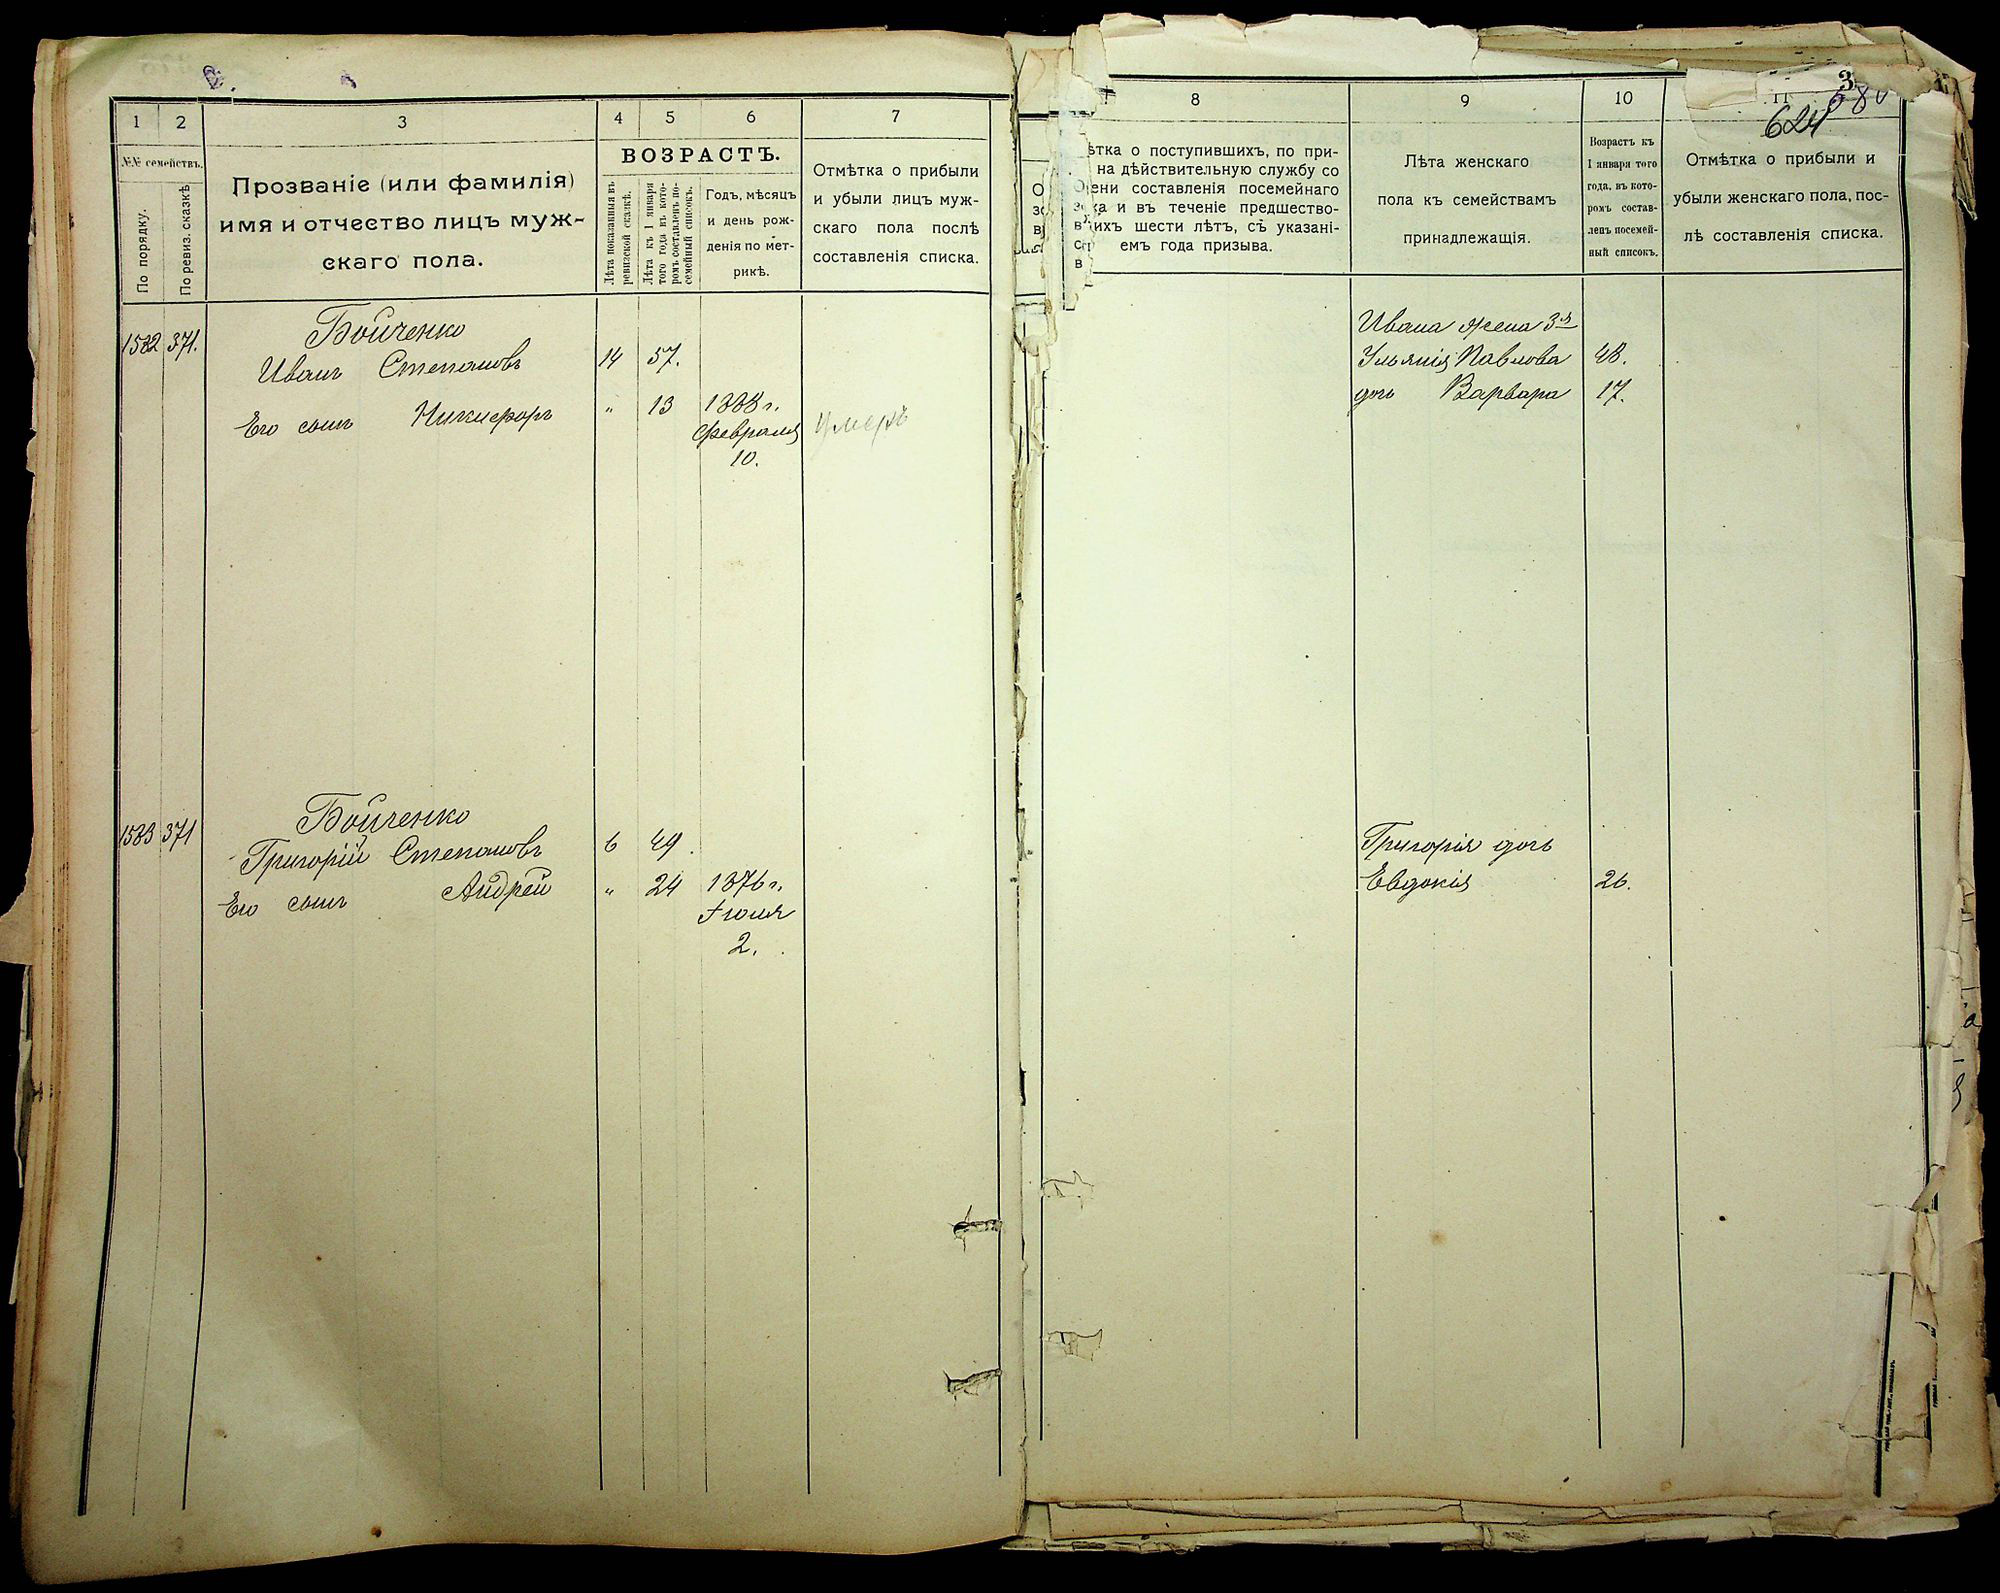 1
2
3
4
5
6
7
№№ семействъ.
По порядку.
По ревиз. сказкѣ
Прозваніе (или фамилія)
имя и отчество лицъ муж-
скаго пола.
ВОЗРАСТЪ.
Лѣта показанныя въ
ревизской сказкѣ.
Лѣта къ 1 января
того года въ кото-
ромъ составленъ по-
семейный списокъ.
Годъ, мѣсяцъ
и день рож-
денія по мет-
рикѣ.
Отмѣтка о прибыли
и убыли лицъ муж-
скаго пола послѣ
составленія списка.
1582 371.
Бойченко
Иванъ Степановъ 14 57.
Его сынъ Никифоръ " 13 1888 г.
февраля
10.
умеръ
1583 371
Бойченко
Григорій Степановъ 6 49.
Его сынъ Андрей " 24 1876 г.
Іюня
2.
8
9
10
11
624
580
ѣтка о поступившихъ, по при-
на дѣйствительную службу со
ени составленія посемейнаго
ка и въ теченіе предшество-
ихъ шести лѣтъ, съ указані-
емъ года призыва.
Лѣта женскаго
пола къ семействамъ
принадлежащія.
Возрастъ къ
1 января того
года, въ кото-
ромъ состав-
ленъ посемей-
ный списокъ.
Отмѣтка о прибыли и
убыли женскаго пола, пос-
лѣ составленія списка.
Ивана жена 3-я
Ульянія Павлова 48.
дочь Варвара 17.
Григорія дочь
Евдокія 26.